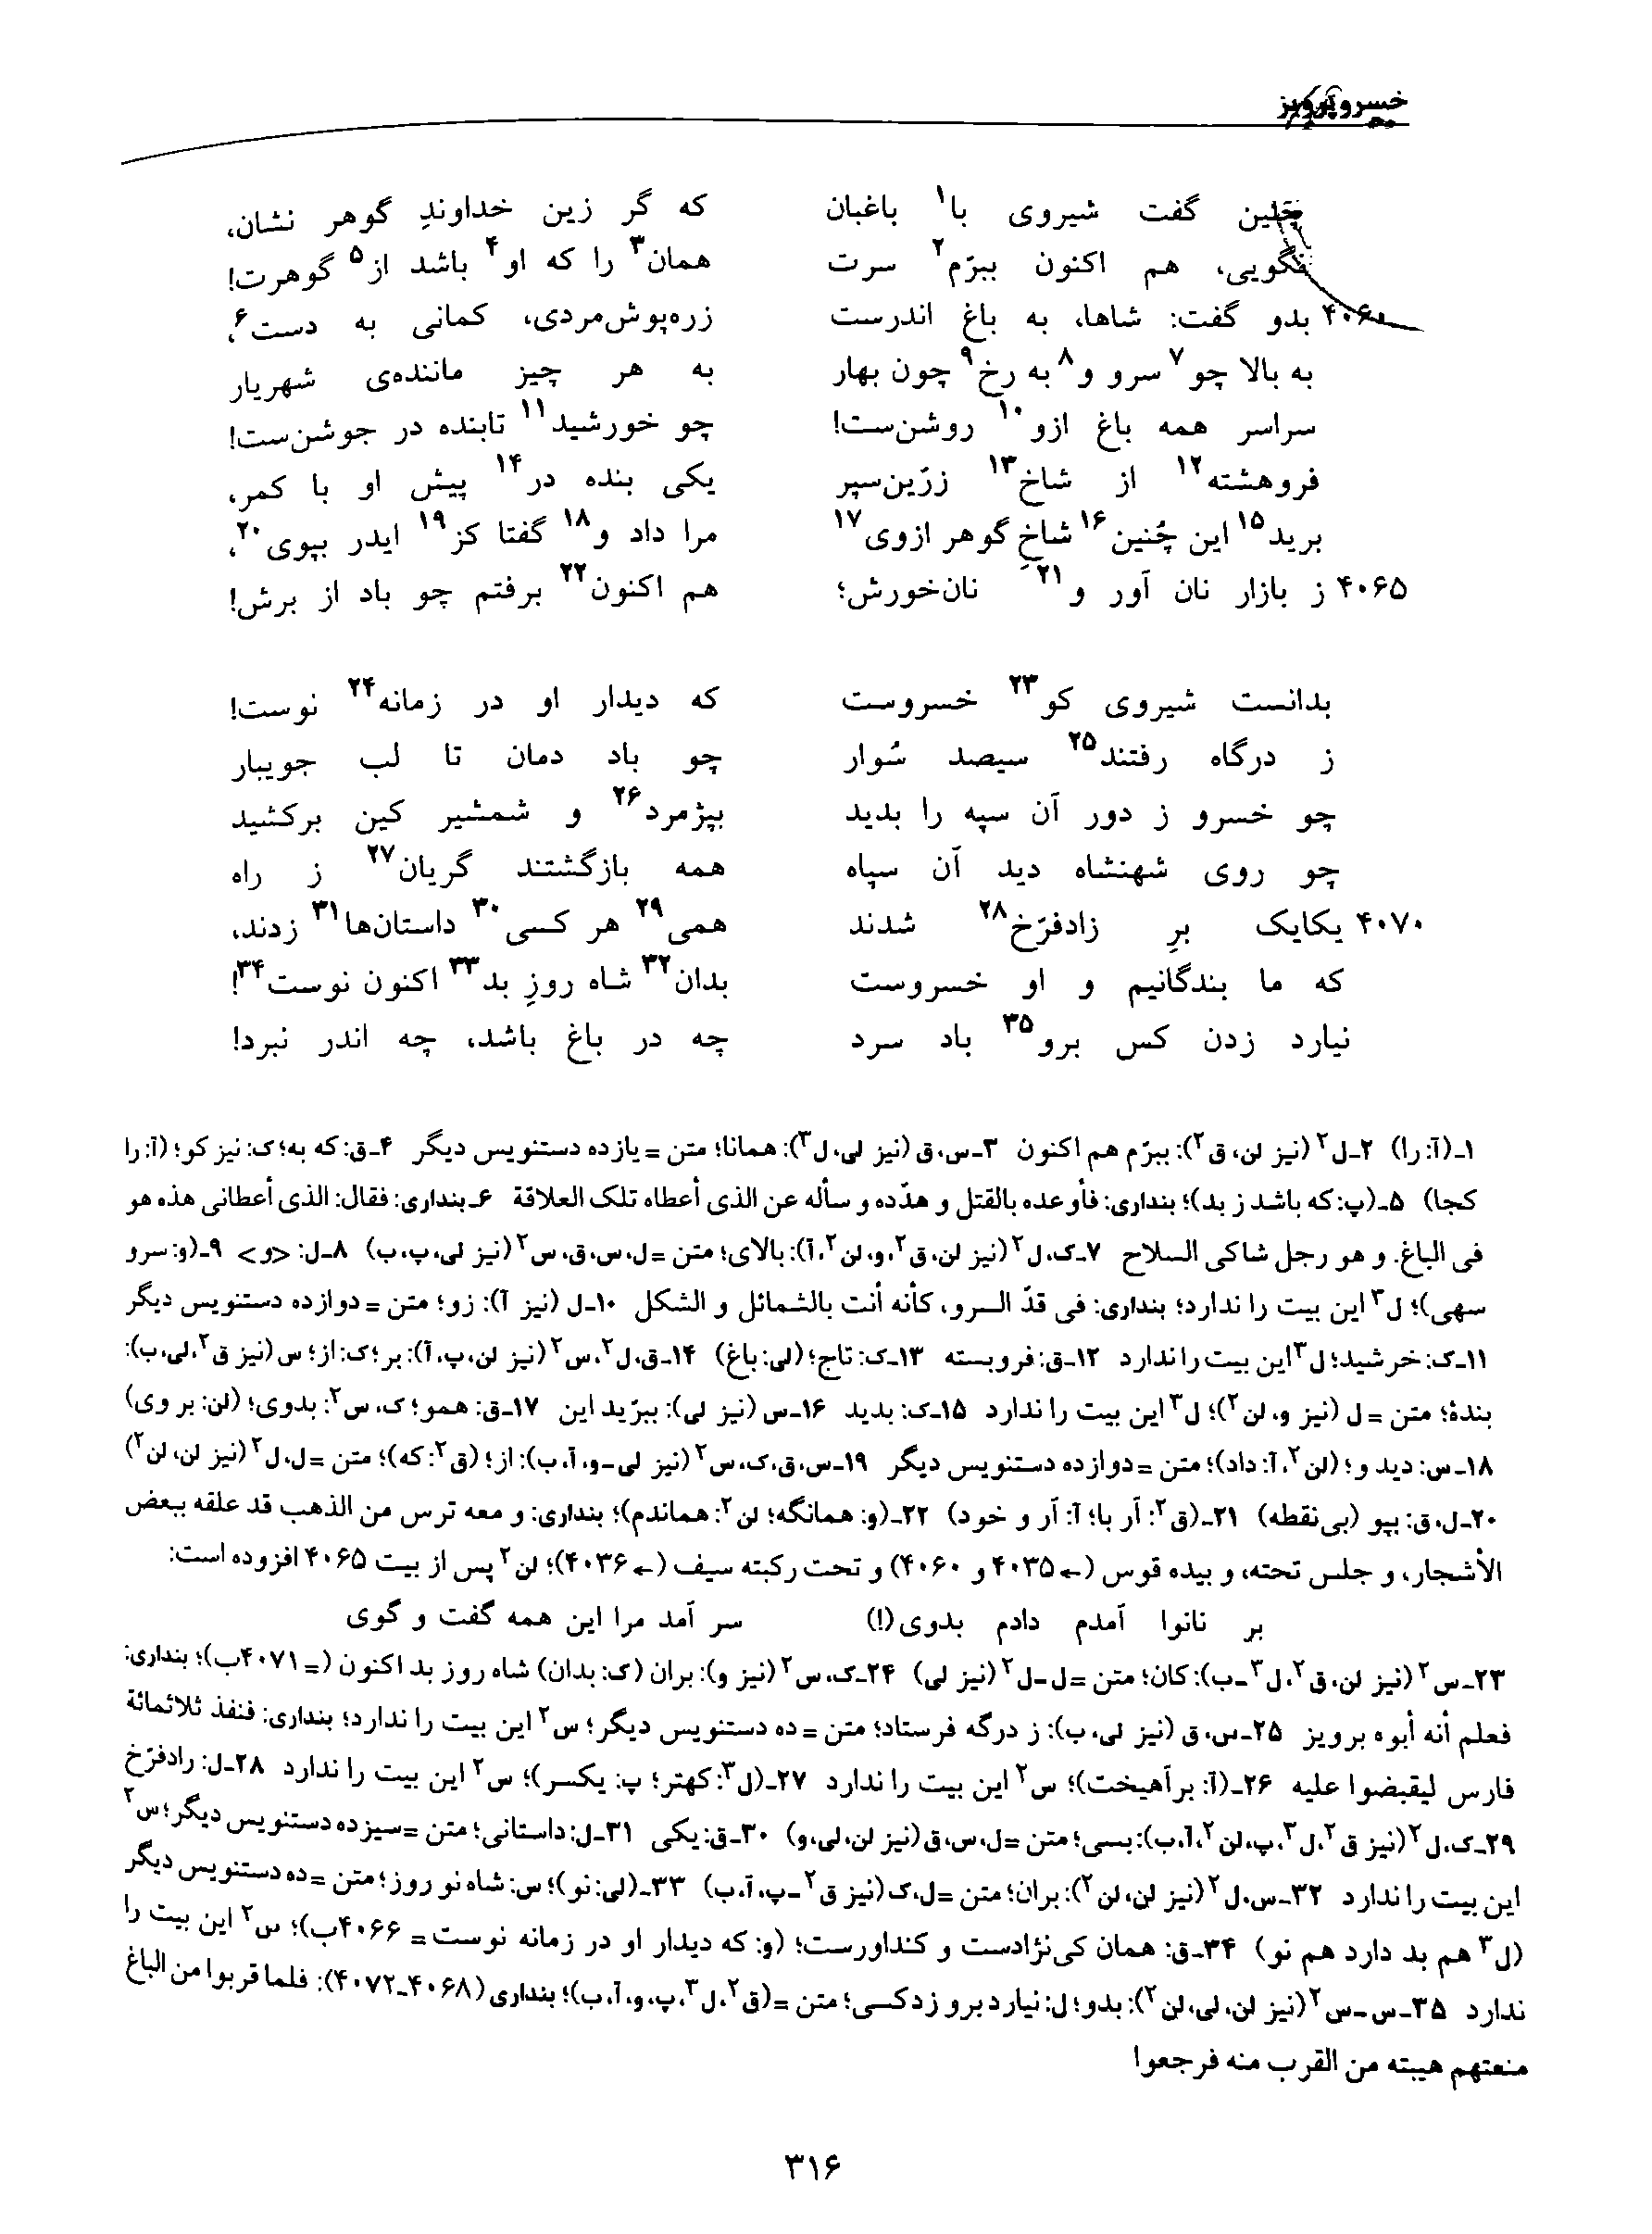 خسرو پرویز
چنین گفت شیروی با۱ باغبان که گر زین خداوندِ گوهر نشان،
نگویی، هم اکنون ببرّم۲ سرت همان۳ را که او۴ باشد از۵ گوهرت!
۴۰۶۰ بدو گفت: شاها، به باغ اندرست زره‌پوش‌مردی، کمانی به دست۶،
به بالا چو۷ سرو و۸ به رخ۹ چون بهار به هر چیز ماننده‌ی شهریار
سراسر همه باغ ازو۱۰ روشن‌ست! چو خورشید۱۱ تابنده در جوشن‌ست!
فروهشته۱۲ از شاخ۱۳ زرّین‌سپر یکی بنده در۱۴ پیش او با کمر،
برید۱۵ این چُنین۱۶ شاخِ گوهر ازوی۱۷ مرا داد و۱۸ گفتا کز۱۹ ایدر بپوی۲۰،
۴۰۶۵ ز بازار نان آور و۲۱ نان‌خورش؛ هم اکنون۲۲ برفتم چو باد از برش!
بدانست شیروی کو۲۳ خسروست که دیدار او در زمانه۲۴ نوست!
ز درگاه رفتند۲۵ سیصد سُوار چو باد دمان تا لب جویبار
چو خسرو ز دور آن سپه را بدید بپژمرد۲۶ و شمشیر کین برکشید
چو روی شهنشاه دید آن سپاه همه بازگشتند گریان۲۷ ز راه
۴۰۷۰ یکایک برِ زادفرّخ۲۸ شدند همی۲۹ هر کسی۳۰ داستان‌ها۳۱ زدند،
که ما بندگانیم و او خسروست بدان۳۲ شاه روزِ بد۳۳ اکنون نوست۳۴!
نیارد زدن کس برو۳۵ باد سرد چه در باغ باشد، چه اندر نبرد!
۱ـ(آ: را) ۲ـل۲ (نیز لن، ق۲): ببرّم هم اکنون ۳ـس، ق (نیز لی، ل۳): همانا؛ متن = یازده دستنویس دیگر ۴ـق: که به؛ ک: نیز کو؛ (آ: را
کجا) ۵ـ(پ: که باشد ز بد)؛ بنداری: فأوعده بالقتل و هدّده و سأله عن الذی أعطاه تلک العلاقة ۶ـبنداری: فقال: الذی أعطانی هذه هو
فی الباغ. و هو رجل شاکی السلاح ۷ـک، ل۲ (نیز لن، ق۲، و، لن۲، آ): بالای؛ متن = ل، س، ق، س۲ (نیز لی، پ، ب) ۸ـل: <و> ۹ـ(و: سرو
سهی)؛ ل۳ این بیت را ندارد؛ بنداری: فی قدّ السرو، کأنه أنت بالشمائل و الشکل ۱۰ـل (نیز آ): زو؛ متن = دوازده دستنویس دیگر
۱۱ـک: خرشید؛ ل۳ این بیت را ندارد ۱۲ـق: فروبسته ۱۳ـک: تاج؛ (لی: باغ) ۱۴ـق، ل۲، س۲ (نیز لن، پ، آ): بر؛ ک: از؛ س (نیز ق۲، لی، ب):
بندهٔ؛ متن = ل (نیز و، لن۲)؛ ل۳ این بیت را ندارد ۱۵ـک: بدید ۱۶ـس (نیز لی): ببرّید این ۱۷ـق: همو؛ ک، س۲: بدوی؛ (لن: بر وی)
۱۸ـس: دید و؛ (لن۲، آ: داد)؛ متن = دوازده دستنویس دیگر ۱۹ـس، ق، ک، س۲ (نیز لی-و، آ، ب): از؛ (ق۲: که)؛ متن = ل، ل۲ (نیز لن، لن۲)
۲۰ـل، ق: بپو (بی‌نقطه) ۲۱ـ(ق۲: آر با؛ آ: آر و خود) ۲۲ـ(و: همانگه؛ لن۲: هماندم)؛ بنداری: و معه ترس من الذهب قد علقه ببعض
الأشجار، و جلس تحته، و بیده قوس (← ۴۰۳۵ و ۴۰۶۰) و تحت رکبته سیف (← ۴۰۳۶)؛ لن۲ پس از بیت ۴۰۶۵ افزوده است:
بر نانوا آمدم دادم بدوی(!) سر آمد مرا این همه گفت و گوی
۲۳ـس۲ (نیز لن، ق۲، ل۳-ب): کان؛ متن = ل-ل۲ (نیز لی) ۲۴ـک، س۲ (نیز و): بران (ک: بدان) شاه روز بد اکنون (= ۴۰۷۱ب)؛ بنداری:
فعلم أنه أبوه برویز ۲۵ـس، ق (نیز لی، ب): ز درگه فرستاد؛ متن = ده دستنویس دیگر؛ س۲ این بیت را ندارد؛ بنداری: فنفذ ثلاثمائة
فارس لیقبضوا علیه ۲۶ـ(آ: برآهیخت)؛ س۲ این بیت را ندارد ۲۷ـ(ل۳: کهتر؛ پ: یکسر)؛ س۲ این بیت را ندارد ۲۸ـل: رادفرّخ
۲۹ـک، ل۲ (نیز ق۲، ل۳، پ، لن۲، آ، ب): بسی؛ متن = ل، س، ق (نیز لن، لی، و) ۳۰ـق: یکی ۳۱ـل: داستانی؛ متن = سیزده دستنویس دیگر؛ س۲
این بیت را ندارد ۳۲ـس، ل۲ (نیز لن، لن۲): بران؛ متن = ل، ک (نیز ق۲-پ، آ، ب) ۳۳ـ(لی: نو)؛ س: شاه نو روز؛ متن = ده دستنویس دیگر
(ل۳ هم بد دارد هم نو) ۳۴ـق: همان کی‌نژادست و کنداورست؛ (و: که دیدار او در زمانه نوست = ۴۰۶۶ب)؛ س۲ این بیت را
ندارد ۳۵ـس-س۲ (نیز لن، لی، لن۲): بدو؛ ل: نیارد برو زد کسی؛ متن = (ق۲، ل۳، پ، و، آ، ب)؛ بنداری (۴۰۶۸ـ۴۰۷۲): فلما قربوا من الباغ
منعتهم هیبته من القرب منه فرجعوا
۳۱۶